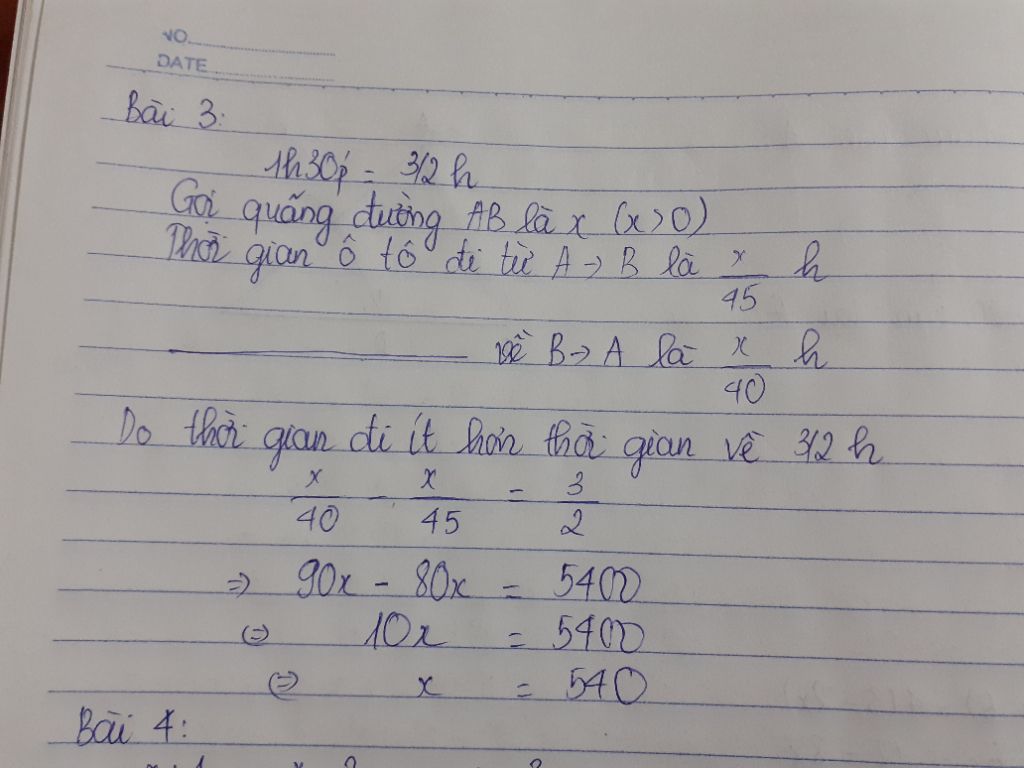 NO
DATE
Bài 3:
1h30p = 3/2 h
Gọi quãng đường AB là x (x>0)
Thời gian ô tô đi từ A → B là x/45 h
về B → A là x/40 h
Do thời gian đi ít hơn thời gian về 3/2 h
x/40 - x/45 = 3/2
⇒ 90x - 80x = 5400
⇔ 10x = 5400
⇔ x = 540
Bài 4: